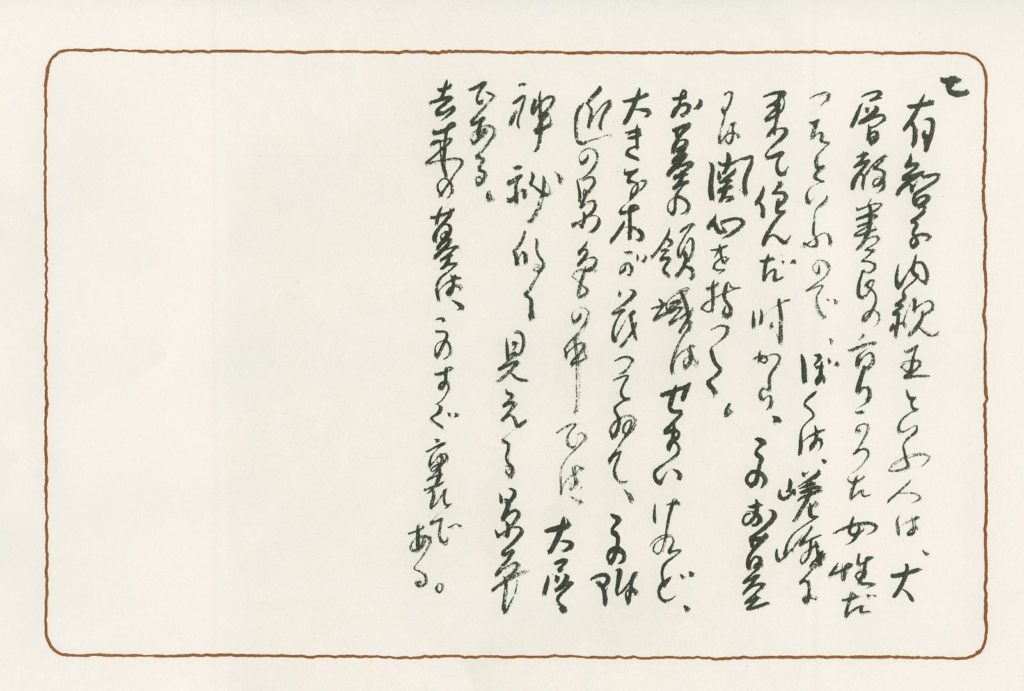 有智子内親王といふ人は、大
層教養の高かつた女性だ
つたといふので、ぼくは、嵯峨に
来て住んだ時から、このお墓
には関心を持つた。
お墓の領域はせまいけれど、
大きな木が茂つてゐて、この附
近の景色の中では大層
神秘的に見える景色
である。
去来の墓は、このすぐ裏で
ある。